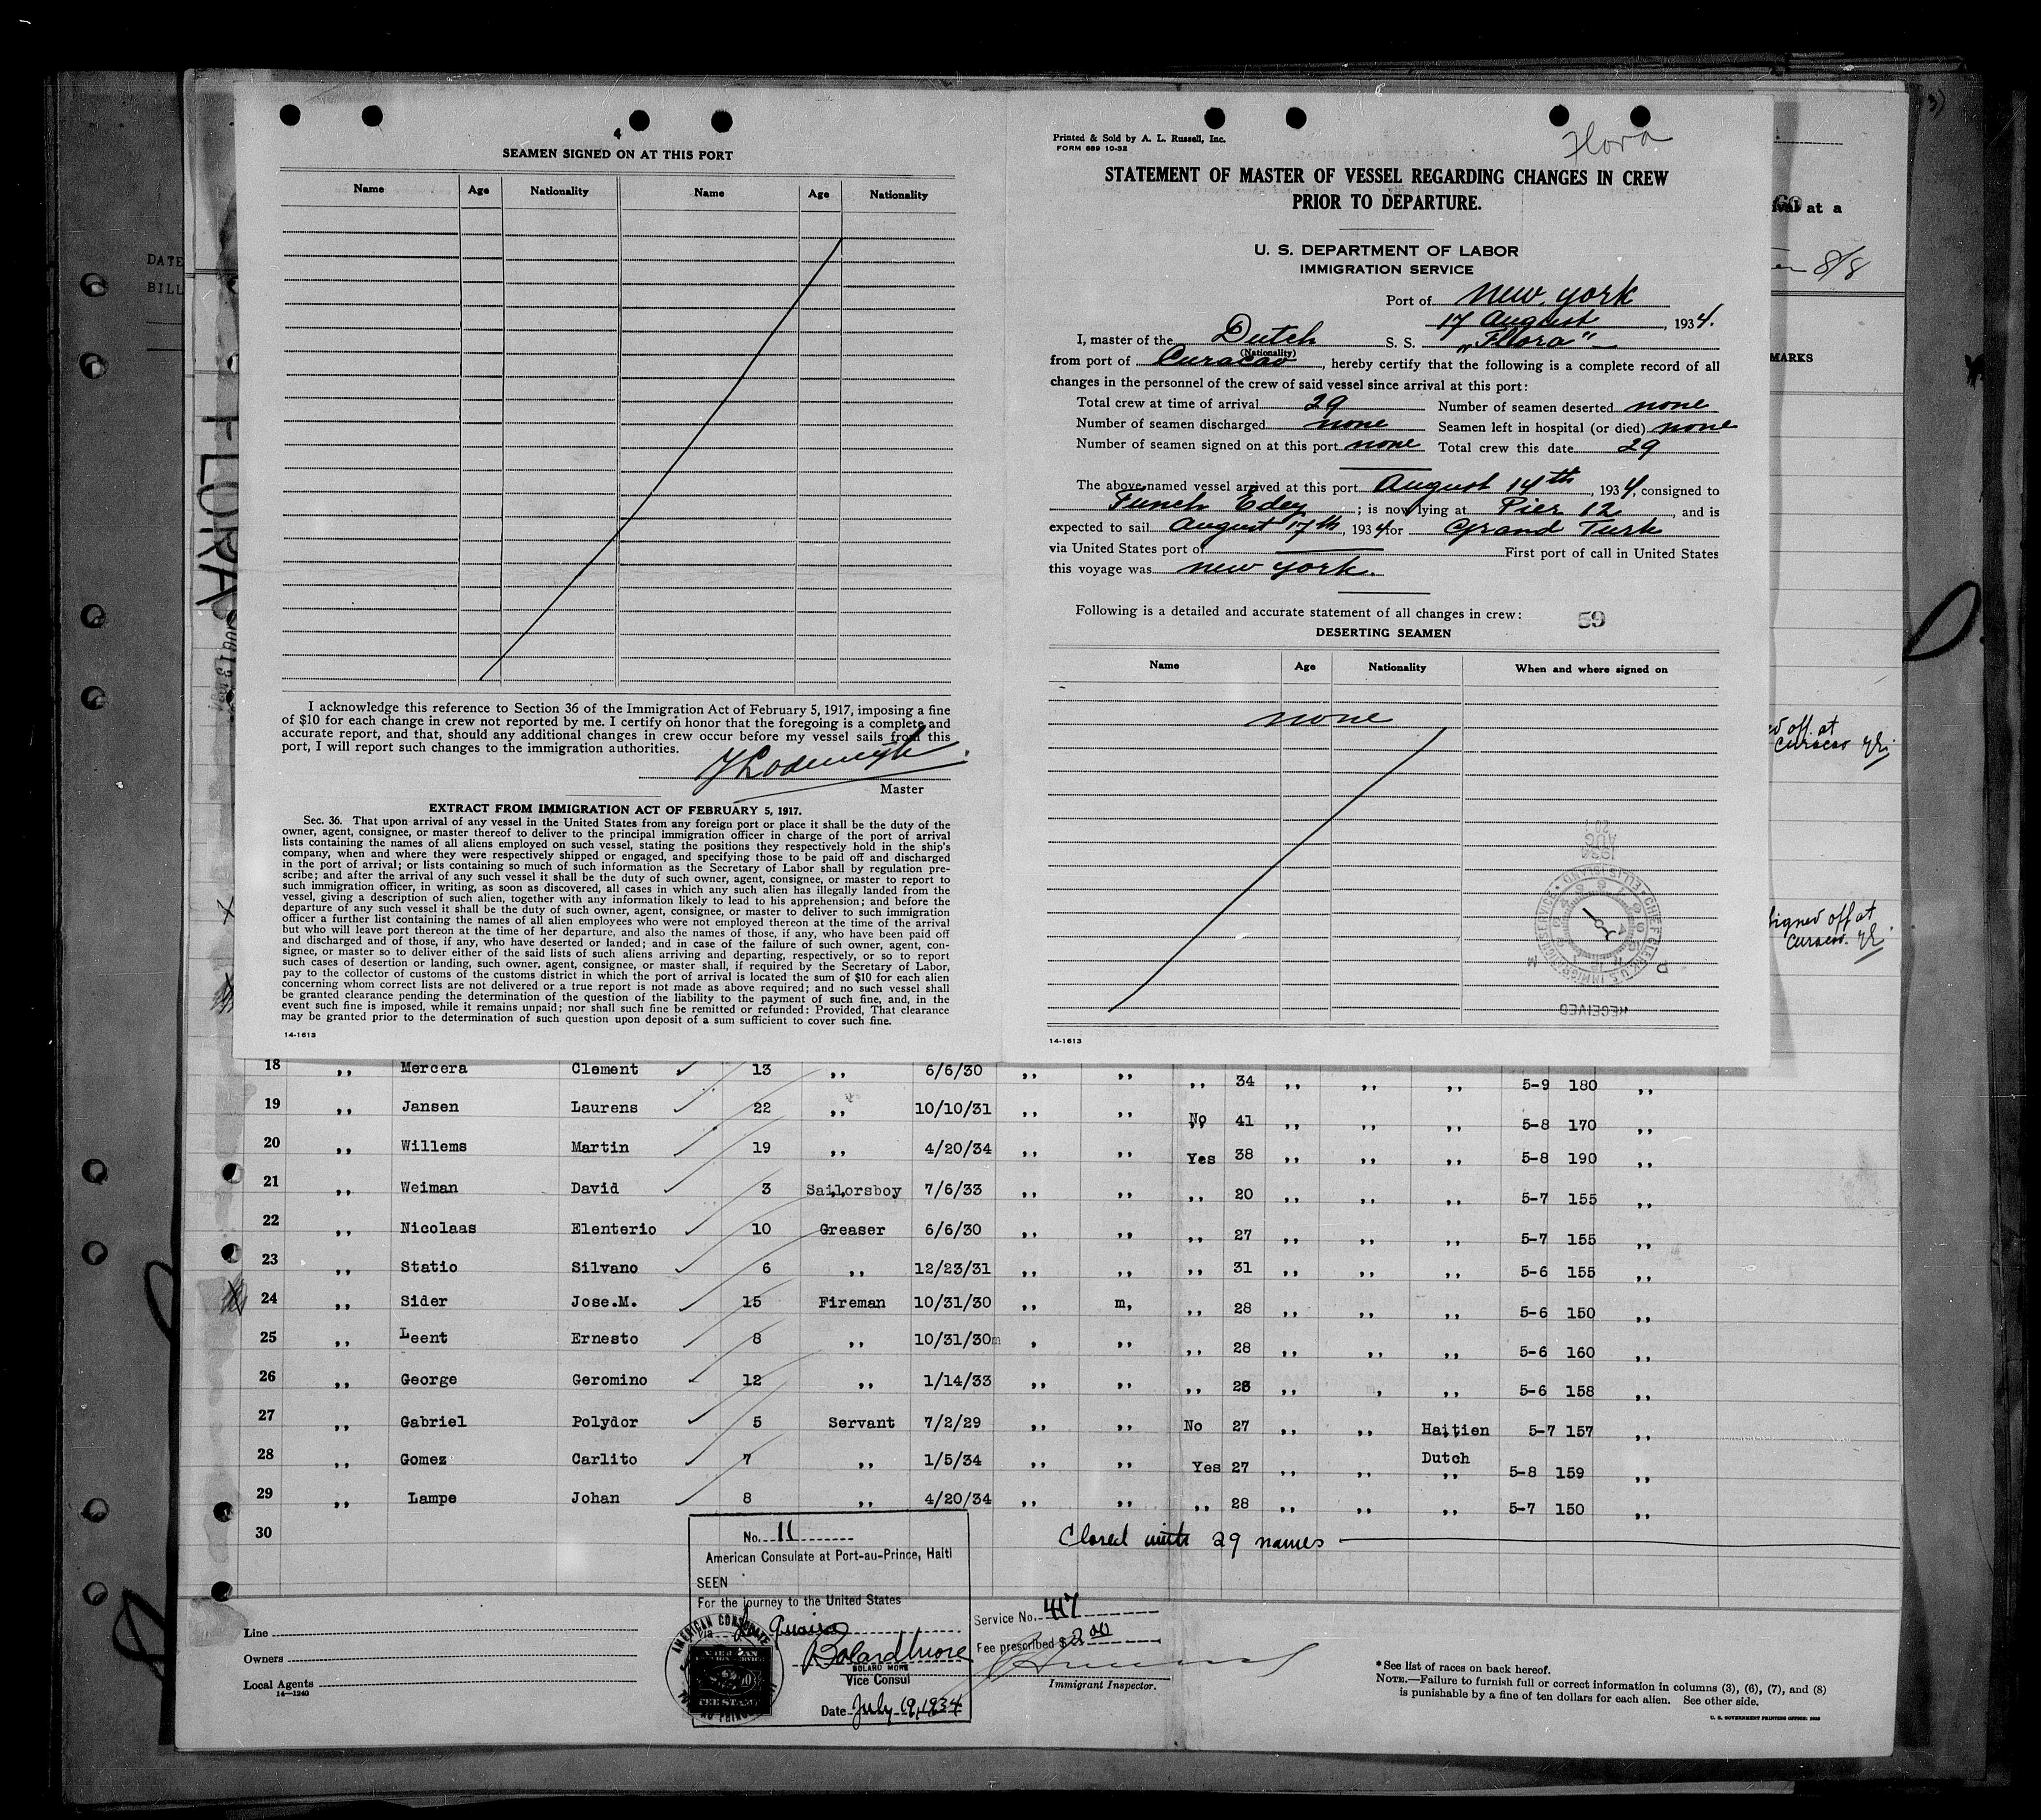 4
SEAMEN SIGNED ON AT THIS PORT
Name Age Nationality Name Age Nationality
I acknowledge this reference to Section 36 of the Immigration Act of February 5, 1917, imposing a fine
of $10 for each change in crew not reported by me. I certify on honor that the foregoing is a complete and
accurate report, and that, should any additional changes in crew occur before my vessel sails from this
port, I will report such changes to the immigration authorities.
Master
EXTRACT FROM IMMIGRATION ACT OF FEBRUARY 5, 1917.
Sec. 36. That upon arrival of any vessel in the United States from any foreign port or place it shall be the duty of the
owner, agent, consignee, or master thereof to deliver to the principal immigration officer in charge of the port of arrival
lists containing the names of all aliens employed on such vessel, stating the positions they respectively hold in the ship's
company, when and where they were respectively shipped or engaged, and specifying those to be paid off and discharged
in the port of arrival; or lists containing so much of such information as the Secretary of Labor shall by regulation pre-
scribe; and after the arrival of any such vessel it shall be the duty of such owner, agent, consignee, or master to report to
such immigration officer, in writing, as soon as discovered, all cases in which any such alien has illegally landed from the
vessel, giving a description of such alien, together with any information likely to lead to his apprehension; and before the
departure of any such vessel it shall be the duty of such owner, agent, consignee, or master to deliver to such immigration
officer a further list containing the names of all alien employees who were not employed thereon at the time of the arrival
but who will leave port thereon at the time of her departure, and also the names of those, if any, who have been paid off
and discharged and of those, if any, who have deserted or landed; and in case of the failure of such owner, agent, con-
signee, or master so to deliver either of the said lists of such aliens arriving and departing, respectively, or so to report
such cases of desertion or landing, such owner, agent, consignee, or master shall, if required by the Secretary of Labor,
pay to the collector of customs of the customs district in which the port of arrival is located the sum of $10 for each alien
concerning whom correct lists are not delivered or a true report is not made as above required; and no such vessel shall
be granted clearance pending the determination of the question of the liability to the payment of such fine, and, in the
event such fine is imposed, while it remains unpaid; nor shall such fine be remitted or refunded: Provided, That clearance
may be granted prior to the determination of such question upon deposit of a sum sufficient to cover such fine.
14-1613
Printed & Sold by A. L. Russell, Inc.
FORM 689 10-32
Flora
STATEMENT OF MASTER OF VESSEL REGARDING CHANGES IN CREW
PRIOR TO DEPARTURE.
U. S. DEPARTMENT OF LABOR
IMMIGRATION SERVICE
Port of New York
17 August, 1934.
I, master of the Dutch S. S. „Flora"
(Nationality)
from port of Curacao, hereby certify that the following is a complete record of all
changes in the personnel of the crew of said vessel since arrival at this port:
Total crew at time of arrival 29 Number of seamen deserted none
Number of seamen discharged none Seamen left in hospital (or died) none
Number of seamen signed on at this port none Total crew this date 29
The above-named vessel arrived at this port August 14th, 1934, consigned to
Funch Edey; is now lying at Pier 12, and is
expected to sail August 17th, 1934 for Grand Turk
via United States port of First port of call in United States
this voyage was New York.
Following is a detailed and accurate statement of all changes in crew: 59
DESERTING SEAMEN
Name Age Nationality When and where signed on
none
1934
AUG
CHIEF CLERK U.S. IMMIGRATION SERVICE ELLIS ISLAND
RECEIVED
14-1613
DATE
BILL
FLORA
ival at a
8/8
MARKS
off at
Curacao
Signed off at
Curacao.
18 ,, Mercera Clement 13 ,, 6/6/30 ,, ,, ,, 34 ,, ,, ,, 5-9 180 ,,
19 ,, Jansen Laurens 22 ,, 10/10/31 ,, ,, No 41 ,, ,, ,, 5-8 170 ,,
20 ,, Willems Martin 19 ,, 4/20/34 ,, ,, Yes 38 ,, ,, ,, 5-8 190 ,,
21 ,, Weiman David 3 Sailorsboy 7/6/33 ,, ,, ,, 20 ,, ,, ,, 5-7 155 ,,
22 ,, Nicolaas Elenterio 10 Greaser 6/6/30 ,, ,, ,, 27 ,, ,, ,, 5-7 155 ,,
23 ,, Statio Silvano 6 ,, 12/23/31 ,, ,, ,, 31 ,, ,, ,, 5-6 155 ,,
24 ,, Sider Jose.M. 15 Fireman 10/31/30 ,, m, ,, 28 ,, ,, ,, 5-6 150 ,,
25 ,, Leent Ernesto 8 ,, 10/31/30m , ,, ,, 28 ,, ,, ,, 5-6 160 ,,
26 ,, George Geromino 12 ,, 1/14/33 ,, ,, ,, 28 ,, , ,, 5-6 158 ,,
27 ,, Gabriel Polydor 5 Servant 7/2/29 ,, ,, No 27 ,, ,, Haitien 5-7 157 ,,
28 ,, Gomez Carlito 7 ,, 1/5/34 ,, ,, Yes 27 ,, ,, Dutch ,, 5-8 159 ,,
29 ,, Lampe Johan 8 ,, 4/20/34 ,, ,, ,, 28 ,, ,, ,, 5-7 150 ,,
30 Closed with 29 names
No. 11
American Consulate at Port-au-Prince, Haiti
SEEN
For the journey to the United States
via La Guaira
BOLARD MORE
Vice Consul
Date July 19, 1934
AMERICAN CONSULATE
FEE STAMP
Service No. 417
Fee prescribed $ 2.00
Immigrant Inspector.
Line
Owners
Local Agents
14-1240
* See list of races on back hereof.
NOTE.—Failure to furnish full or correct information in columns (3), (6), (7), and (8)
is punishable by a fine of ten dollars for each alien. See other side.
U. S. GOVERNMENT PRINTING OFFICE: